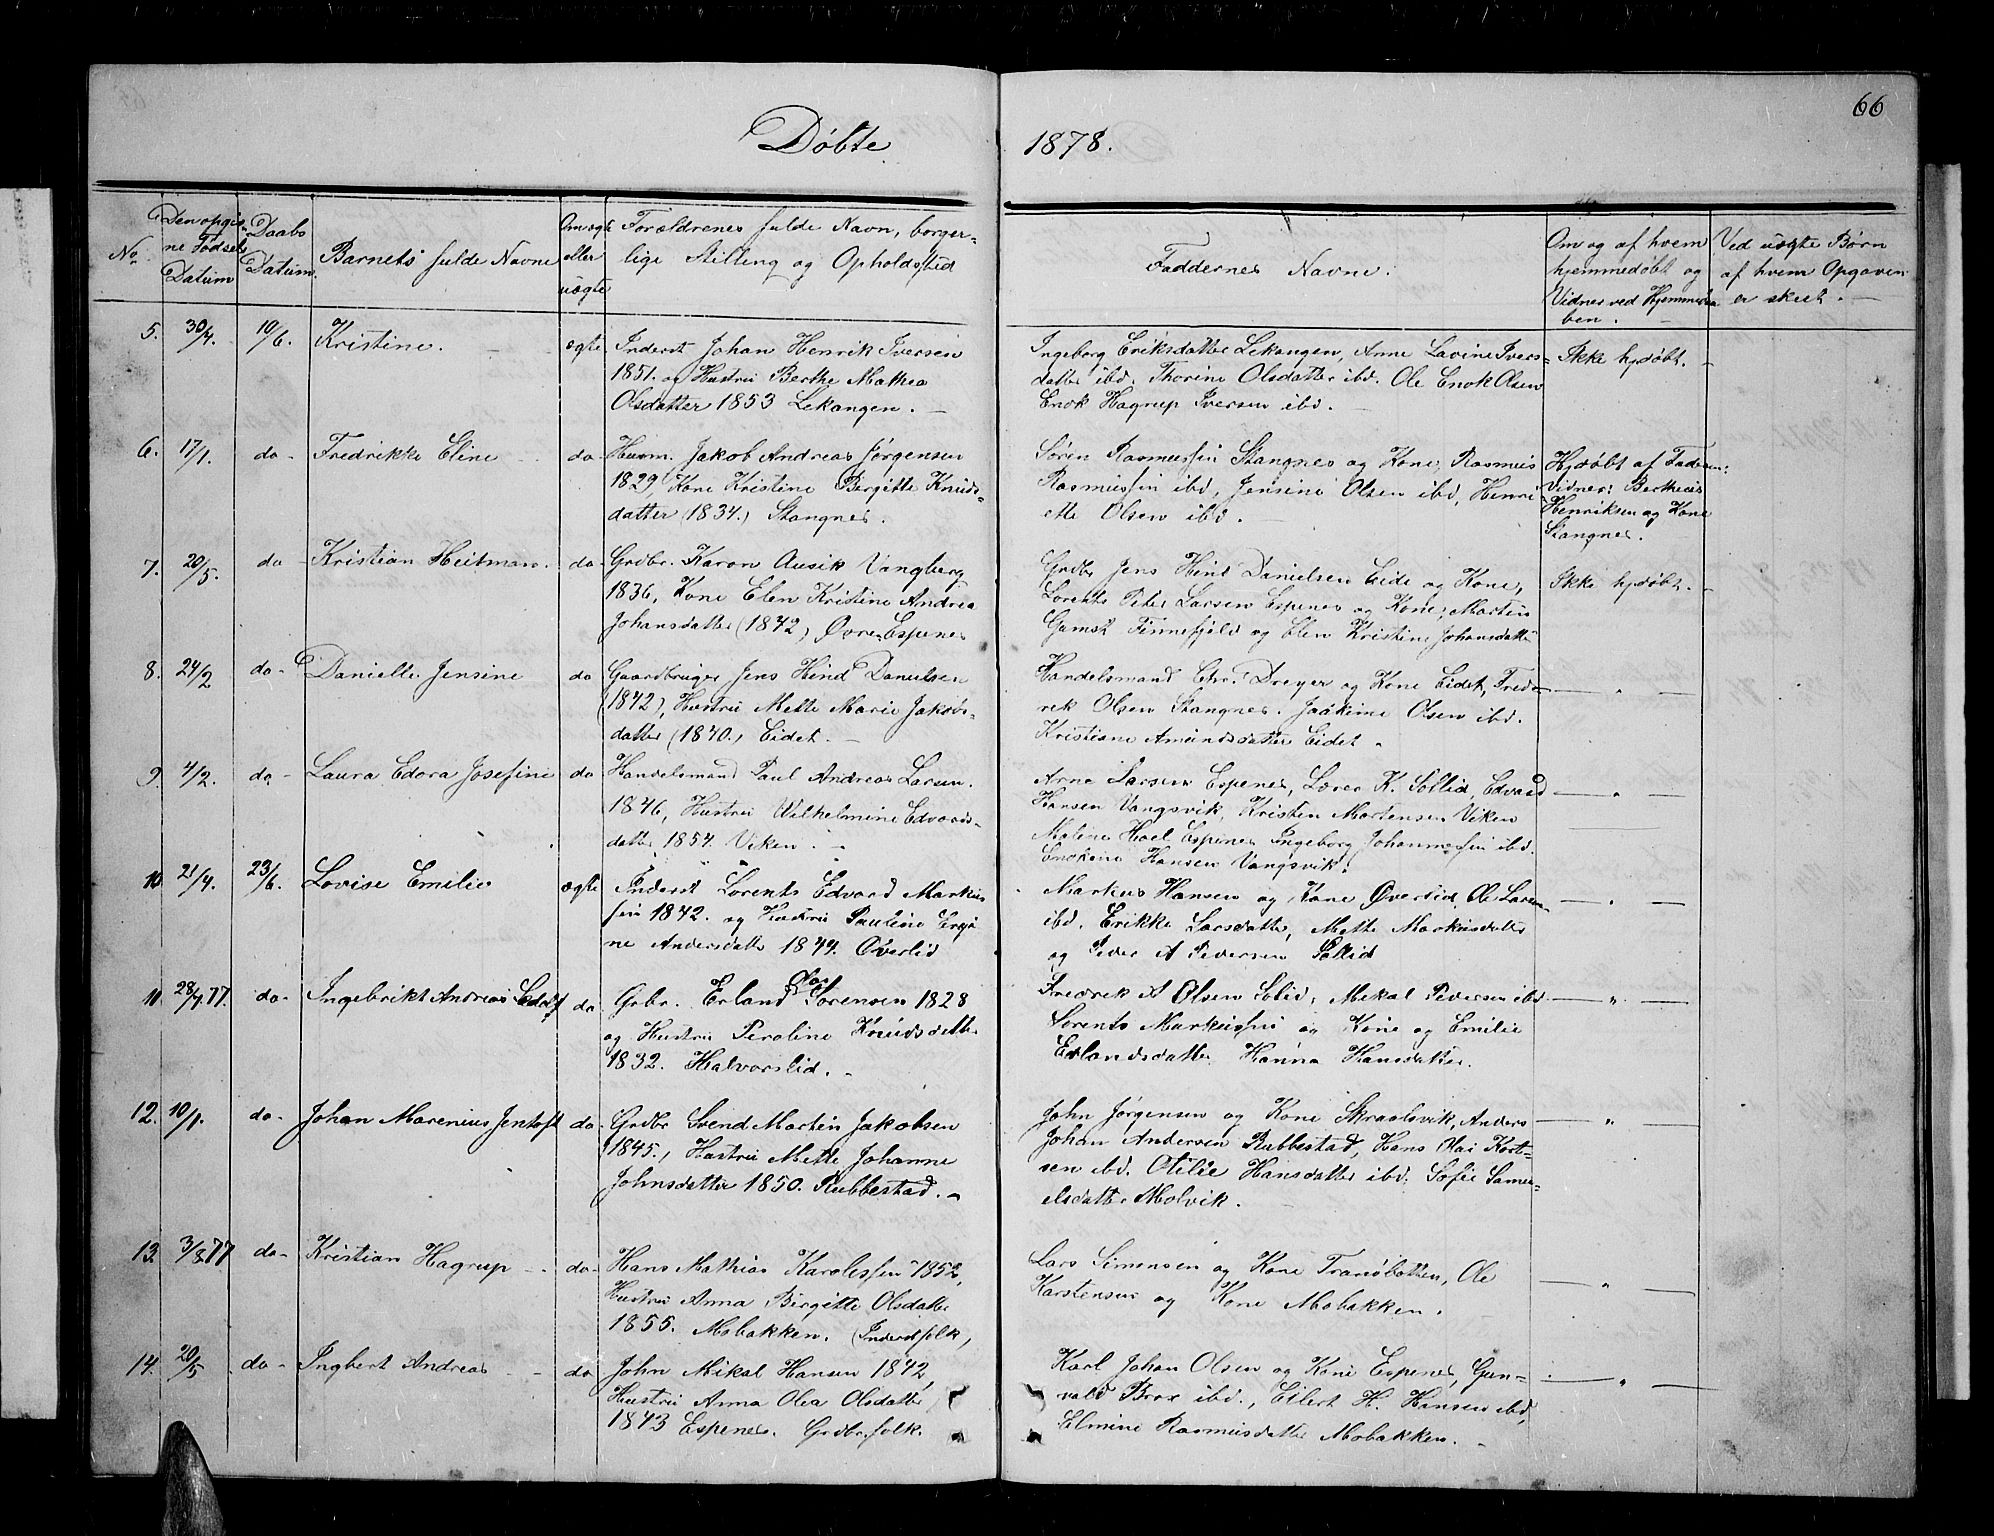 66
Døbte 1878.
No. Den opgivne Fødsels Datum Daabs Datum. Barnets fulde Navne Om ægte eller uægte Forældrenes fulde Navn, borgerlige Stilling og Opholdsted
Faddernes Navne. Om og af hvem hjemmedøbt og Vidner ved Hjemmedaaben. Ved uægte Børn af hvem Opgaven er skeet.
5. 30/4. 10/6. Kristine. ægte Inderst Johan Henrik Iversen
1851. og Hustru Berthe Mathea
Olsdatter 1853 Lekangen.
Ingeborg Eriksdatter Lekangen, Anne Lavine Ivers-
datter ibd. Thorine Olsdatter ibd. Ole Enok Olsen
Enok Hagrup Iversen ibd.
Ikke hjdøbt.
6. 17/1. do- Fredrikke Eline do- Husm. Jakob Andreas Jørgensen
1829, Kone Kristine Bergitte Knuds-
datter (1834.) Stangnes.
Søren Rasmussen Stangnes og Kone, Rasmus
Rasmussen ibd, Jensine Olsen ibd, Henri-
ette Olsen ibd.
Hjdøbt af Faderen:
Vidner: Bertheus
Henriksen og Kone
Stangnes.
7. 20/5. do- Kristian Heitman. do- Grdbr. Karon Ausik Vangberg
1836, Kone Elen Kristine Andrea
Johansdatter (1842) Øvre Espenes
Grdbr Jens Hind Danielsen Eide og Kone,
Lorents Peter Larsen Espenes og Kone, Martin
Gamst Finnefjeld og Elen Kristine Johansdatter
Ikke hjdøbt.
8. 24/2 do- Danielle Jensine do Gaardbruger Jens Hind Danielsen
(1842), Hustru Mette Marie Jakobs-
datter (1840.) Eidet.
Handelsmand Chr. Dreyer og Kone Eidet, Fred-
rik Olsen Stangnes. Joakime Olsen ibd.
Kristiane Amundsdatter Eidet.
— " —
9. 4/2. do- Laura Edora Josefine do Handelsmand Paul Andreas Larsen.
1846, Hustru Wilhelmine Edvards-
datter 1854. Viken.
Arne Larsen Espenes, Lærer K. Sollid, Edvard
Hansen Vangsvik, Kristen Mortensen Viken
Maline Hoel Espenes Ingeborg Johannessen ibd.
Enokine Hansen Vangsvik.
— " —
10 21/4. 23/6. Lovise Emilie ægte Inderst Lorents Edvard Markus
sen 1842. og Hustru Pauline
ne Andersdatter 1844. Øverlid
Markus Hansen og Kone Øverlid, Ole Larsen
ibd. Erikke Larsdatter, Mette Markusdatter
og Peder A Pedersen Sollid
— " —
11. 28/7.77. do- Ingebrikt Andreas do Grbr. Erland Olai Sørensen 1828
og Hustru Peroline Knudsdatter
1832. Halvorslid.
Fredrik A Olsen Solid, Mikal Pedersen ibd
Lorents Markussen og Kone og Emilie
Erlandsdatter Hanna Hansdatter.
— " —
12. 10/1. do- Johan Marenius Jentoft do- Grdbr Svend Martin Jakobsen
1845., Hustru Mette Johanne
Johnsdatter 1850. Rubbestad.
John Jørgensen og Kone Skraalsvik, Anders
Johan Andersen Rubbestad, Hans Olai Kort-
sen ibd. Otilie Hansdatter ibd. Sofie Samu-
elsdatter Molvik.
— " —
13. 3/8.77 do- Kristian Hagrup do- Hans Mathias Karolissen 1852,
Hustru Anna Birgitte Olsdatter
1855. Mobakken. (Inderstfolk,
Lars Simensen og Kone Tranøbotten, Ole
Karstensen og Kone Mobakken.
— " —
14. 20/5 do- Ingbert Andreas do John Mikal Hansen 1842,
Hustru Anna Olea Olsdatter
1843 Espenes. Grdbr.folk.
Karl Johan Olsen og Kone Espenes, Gun-
vald Brox ibd., Eilert H. Hansen ibd,
Elmine Rasmusdatter Mobakken.
— " —